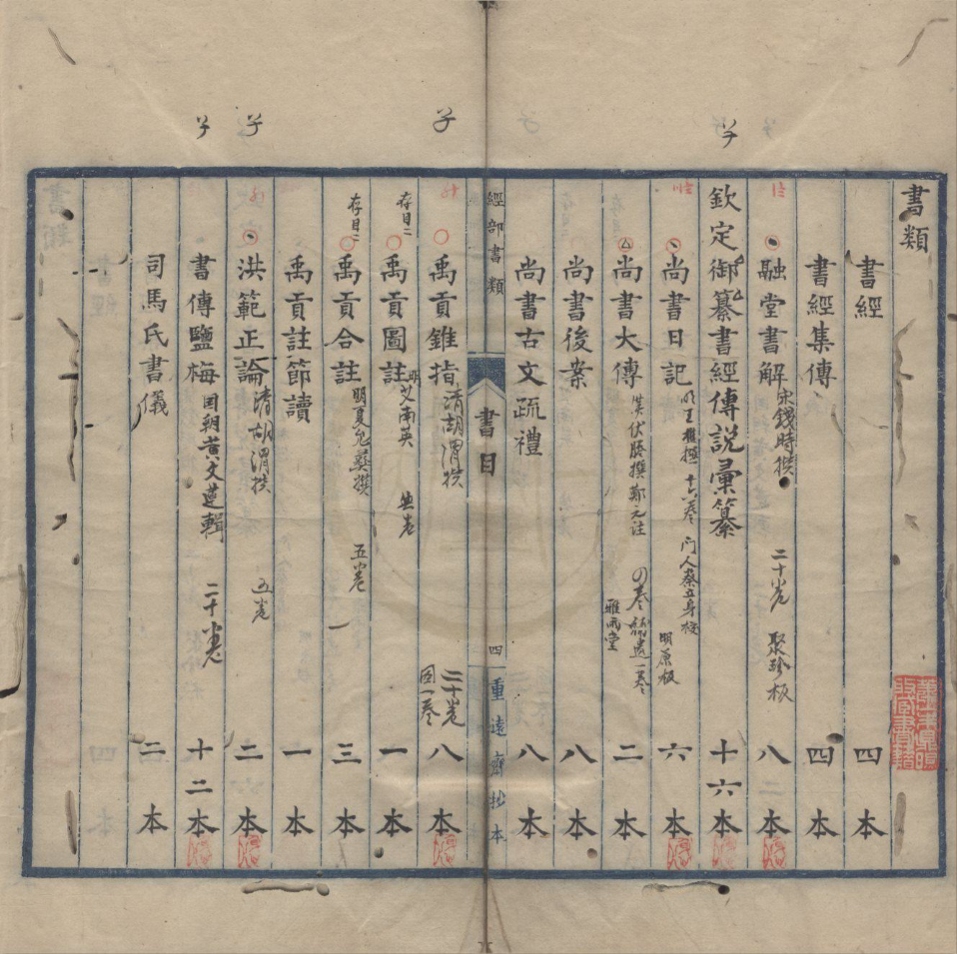 書類
書經 四本
書經集傳 四本
融堂書解 宋錢時撰 二十卷 聚珍板 八本
欽定御纂書經傳說彙纂 十六本
尚書日記 明王樵撰 十六卷 門人蔡立身校 明原板 六本
尚書大傳 漢伏勝撰 鄭元注 四卷 補遺一卷 雅雨堂 二本
尚書後案 八本
尚書古文疏禮 八本
經部書類
書目
四
重遠齋抄本
禹貢錐指 清胡渭撰 二十卷 圖一卷 八本
存目二 禹貢圖註 明艾南英 無卷 一本
存目二 禹貢合註 明夏允彝撰 五卷 三本
禹貢註節讀 一本
洪範正論 清胡渭撰 五卷 二本
書傳鹽梅 國朝黃文蓮輯 二十卷 十二本
司馬氏書儀 二本